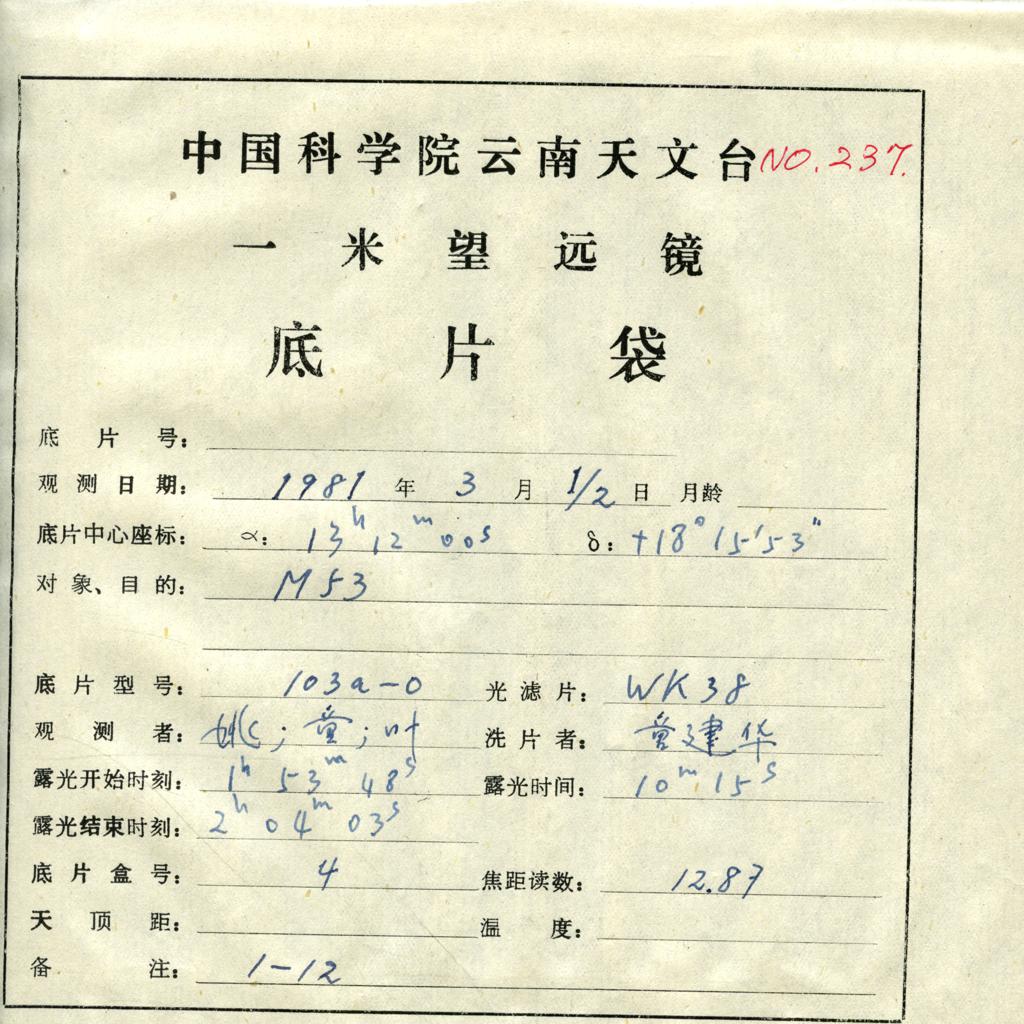 中国科学院云南天文台 NO.237.
一米望远镜
底片袋
底片号：
观测日期： 1981 年 3 月 1/2 日 月龄
底片中心座标： α： 13h 12m 00s δ： +18° 15′ 53″
对象、目的： M53
底片型号： 103a-O 光滤片： WK38
观测者： 姚；童；叶 洗片者： 童建华
露光开始时刻： 1h 53m 48s 露光时间： 10m 15s
露光结束时刻： 2h 04m 03s
底片盒号： 4 焦距读数： 12.87
天顶距： 温度：
备注： 1-12